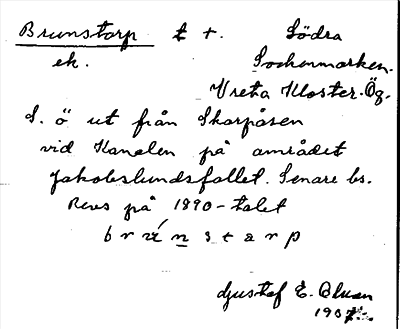 Brunstorp t +. Södra
ek. Sockenmarken.
Vreta Kloster. Ög.
S. ö ut från Skarpåsen
vid Kanalen på området
Jakobslundsfallet. Senare bs.
Revs på 1890-talet
brunstarp
Gustaf E. Oluan